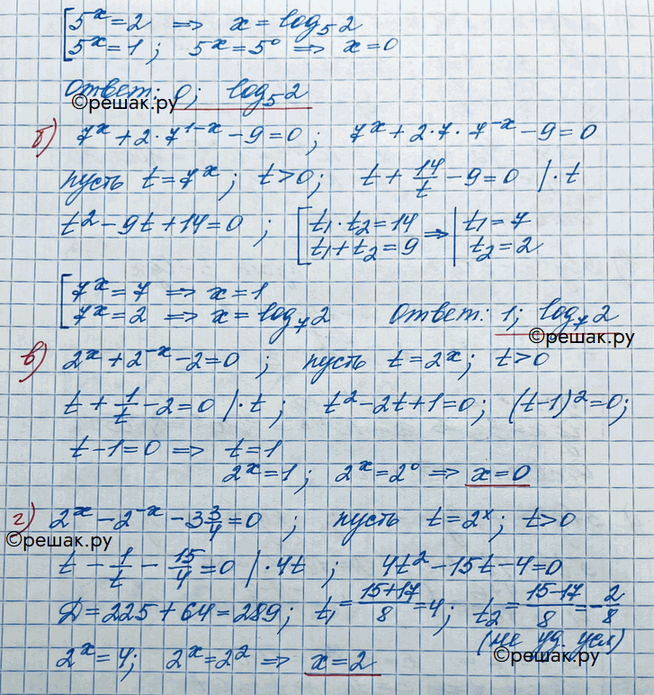 [5^x=2 ⇒ x=log₅2
[5^x=1; 5^x=5⁰ ⇒ x=0
Ответ: 0; log₅2
©решак.ру
б) 7^x+2·7^(1-x)-9=0; 7^x+2·7·7^(-x)-9=0
пусть t=7^x; t>0; t+14/t-9=0 |·t
t²-9t+14=0; [t₁·t₂=14 ⇒ | t₁=7
[t₁+t₂=9 | t₂=2
[7^x=7 ⇒ x=1
[7^x=2 ⇒ x=log₇2 Ответ: 1; log₇2
©решак.ру
в) 2^x+2^(-x)-2=0; пусть t=2^x; t>0
t+1/t-2=0 |·t; t²-2t+1=0; (t-1)²=0;
t-1=0 ⇒ t=1
2^x=1; 2^x=2⁰ ⇒ x=0
г) 2^x-2^(-x)-3 3/4=0; пусть t=2^x; t>0
©решак.ру
t-1/t-15/4=0 |·4t; 4t²-15t-4=0
Д=225+64=289; t₁=(15+17)/8=4; t₂=(15-17)/8=-2/8
(не уд. усл)
2^x=4; 2^x=2² ⇒ x=2
©решак.ру